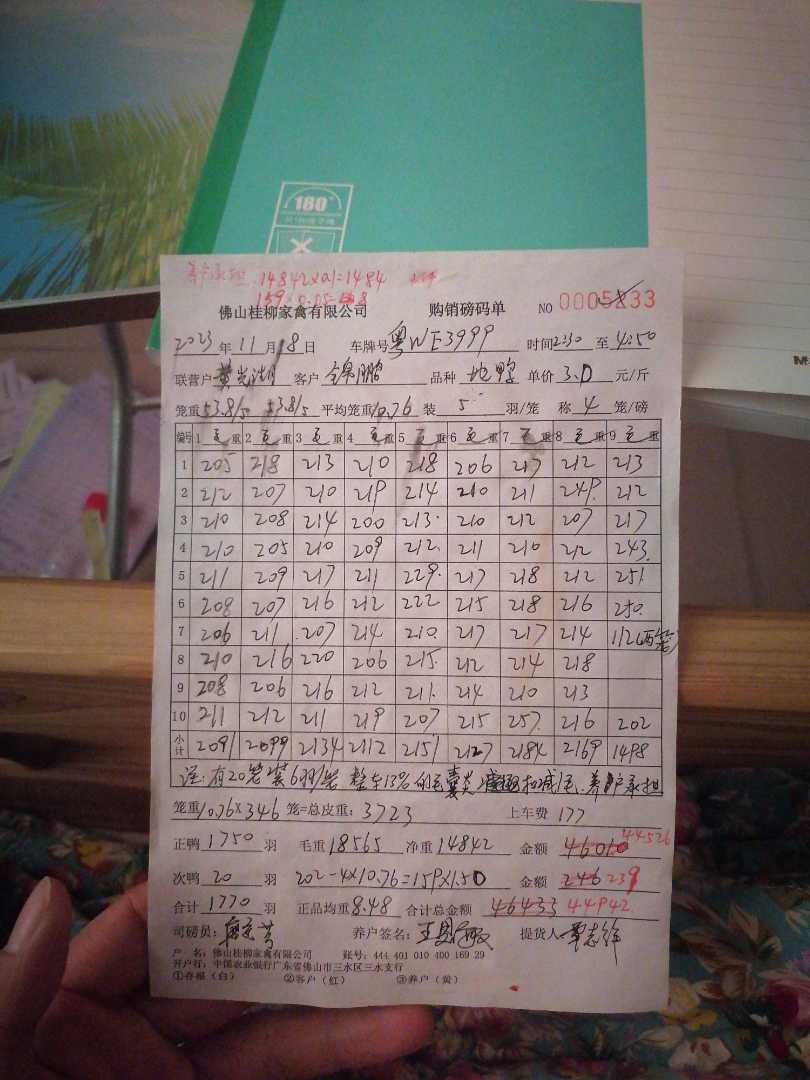 180°
养户承担 14842×0.1=1484
159×0.05=8
佛山桂柳家禽有限公司 购销磅码单 NO 0005833
2023 年 11 月 18 日 车牌号 粤WE3999 时间 2:30 至 4:50
联营户 客户 锦鹏 品种 地鸭 单价 3.0 元/斤
笼重 53.8/5 53.8/5 平均笼重 10.76 装 5 羽/笼 称 4 笼/磅
编号 1 毛重 2 毛重 3 毛重 4 毛重 5 毛重 6 毛重 7 毛重 8 毛重 9 毛重
1 205 218 213 210 218 206 217 212 213
2 212 207 210 219 214 210 211 249 212
3 210 208 214 200 213 210 212 207 217
4 210 205 210 209 212 211 210 212 243
5 211 209 217 211 229 217 218 212 251
6 208 207 216 212 222 215 218 216 250
7 206 211 207 214 210 217 217 214 112(两笼)
8 210 216 220 206 215 212 214 218
9 208 206 216 212 211 214 210 213
10 211 212 211 219 207 215 257 216 202
小计 2091 2099 2134 2112 2151 2127 2184 2169 1498
注:有20笼装6羽/笼 整车13%的毛囊炎 扣减1毛.养户承担
笼重 10.76×346 笼=总皮重: 3723 上车费 177
正鸭 1750 羽 毛重 18565 净重 14842 金额 46010 44526
次鸭 20 羽 202-4×10.76=159×1.50 金额 246 239
合计 1770 羽 正品均重 8.48 合计总金额 46433 44942
司磅员: 养户签名: 提货人:
户 名: 佛山桂柳家禽有限公司 账号: 444 401 010 400 169 29
开户行: 中国农业银行广东省佛山市三水区三水支行
①存根(白) ②客户(红) ③养户(黄)